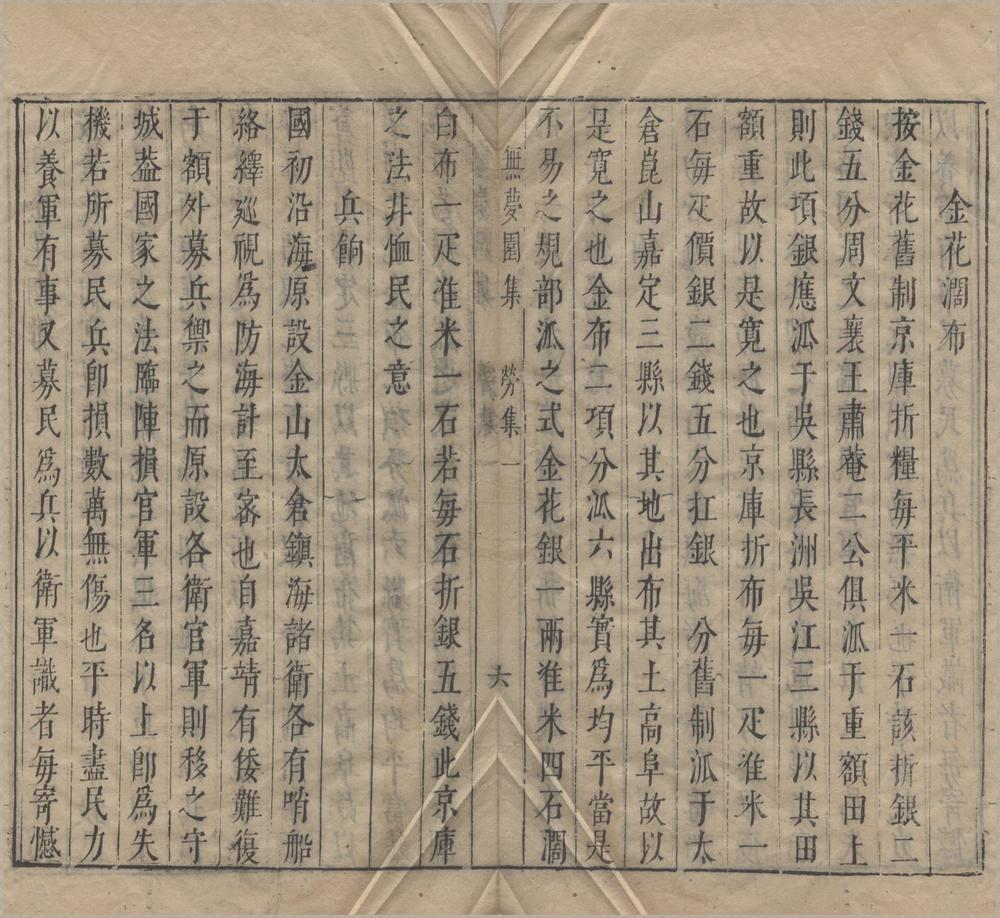 金花濶布
按金花舊制京庫折糧每平米一石該折銀二
錢五分周文襄王肅菴二公俱泒于重額田上
則此項銀應泒于吳縣長洲吳江三縣以其田
額重故以是寬之也京庫折布每一疋准米二
石每疋價銀二錢五分扛銀 分舊制泒于太
倉崑山嘉定三縣以其地出布其土高阜故以
是寬之也金布二項分泒六縣實爲均平當是
不易之規部泒之式金花銀一兩准米四石濶
無夢園集 勞集一 六
白布一疋准米一石若每石折銀五錢此京庫
之法非恤民之意
兵餉
國初沿海原設金山太倉鎮海諸衛各有哨船
絡繹廵視爲防海計至密也自嘉靖有倭難復
于額外募兵禦之而原設各衛官軍則移之守
城葢國家之法臨陣損官軍三名以上卽爲失
機若所募民兵卽損數萬無傷也平時盡民力
以養軍有事又募民爲兵以衛軍識者每寄憾